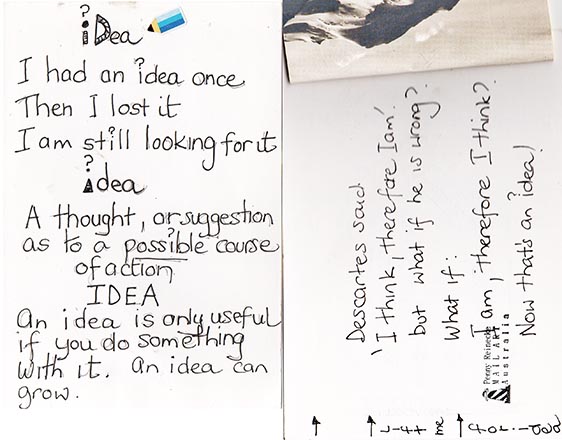 iDea
I had an idea once
Then I lost it
I am still looking for it
idea
A thought, or suggestion
as to a possible course
of action
IDEA
An idea is only useful
if you do something
with it. An idea can
grow.
Descartes said
'I think, therefore I am'.
but what if he is wrong?
What if:
I am, therefore I think?
Now that's an idea!
Penny Reinecke
MAIL ART
Australia
me